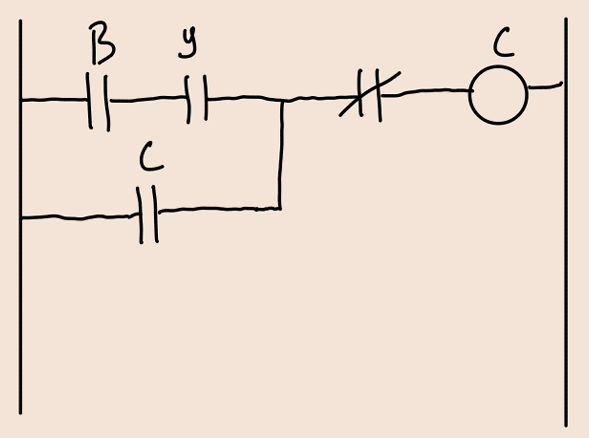 B y C
C